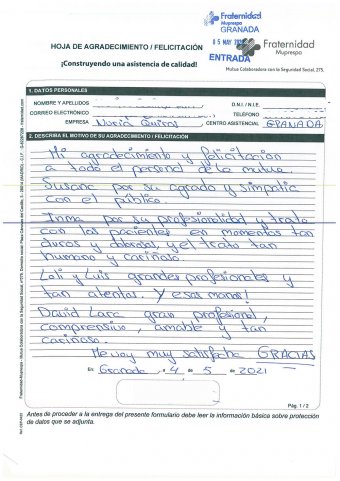 Fraternidad
Muprespa
GRANADA
05 MAY 202
ENTRADA
Fraternidad
Muprespa
Mutua Colaboradora con la Seguridad Social, 275.
HOJA DE AGRADECIMIENTO / FELICITACIÓN
¡Construyendo una asistencia de calidad!
1. DATOS PERSONALES
NOMBRE Y APELLIDOS
D.N.I. / N.I.E.
CORREO ELECTRÓNICO
TELÉFONO
EMPRESA Nuria Quiros
CENTRO ASISTENCIAL GRANADA
2. DESCRIBA EL MOTIVO DE SU AGRADECIMIENTO / FELICITACIÓN
Mi agradecimiento y felicitación
a todo el personal de la mutua.
Susana por su agrado y simpatia
con el público.
Inma por su profesionalidad y trato
con los pacientes en momentos tan
duros y dolorosos, y el trato tan
humano y cariñoso.
Loli y Luis grandes profesionales y
tan atentos. Y esas manos!
David Lara gran profesional,
comprensivo, amable y tan
cariñoso.
Me voy muy satisfecha GRACIAS
En Granada a 4 de 5 de 2021
Pág. 1 / 2
Antes de proceder a la entrega del presente formulario debe leer la información básica sobre protección
de datos que se adjunta.